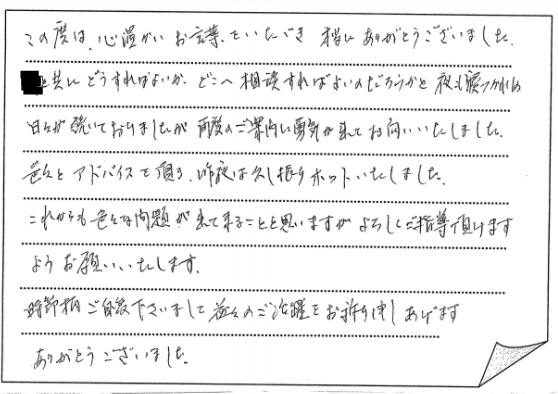 この度は、心温かいお言葉をいただき 本当にありがとうございました。
と共に どうすればよいか、どこへ相談すればよいのだろうかと 夜も寝つかれぬ
日々が続いておりましたが 再度のご案内に勇気が出てお伺いいたしました。
色々とアドバイスを頂き、昨夜は久し振りホットいたしました。
これからも色々な問題が出て来ることと思いますが よろしくご指導頂けます
ようお願いいたします。
時節柄ご自愛下さいまして 益々のご活躍をお祈り申しあげます
ありがとうございました。